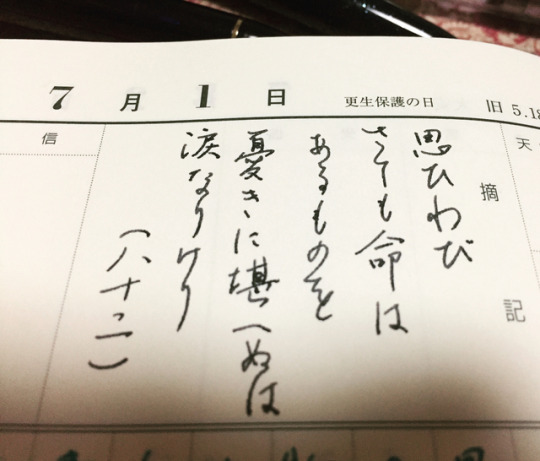 7月1日 更生保護の日 旧5.18
天
摘記
思ひわび
さても命は
あるものを
憂きに堪へぬは
涙なりけり
(八十二)
信